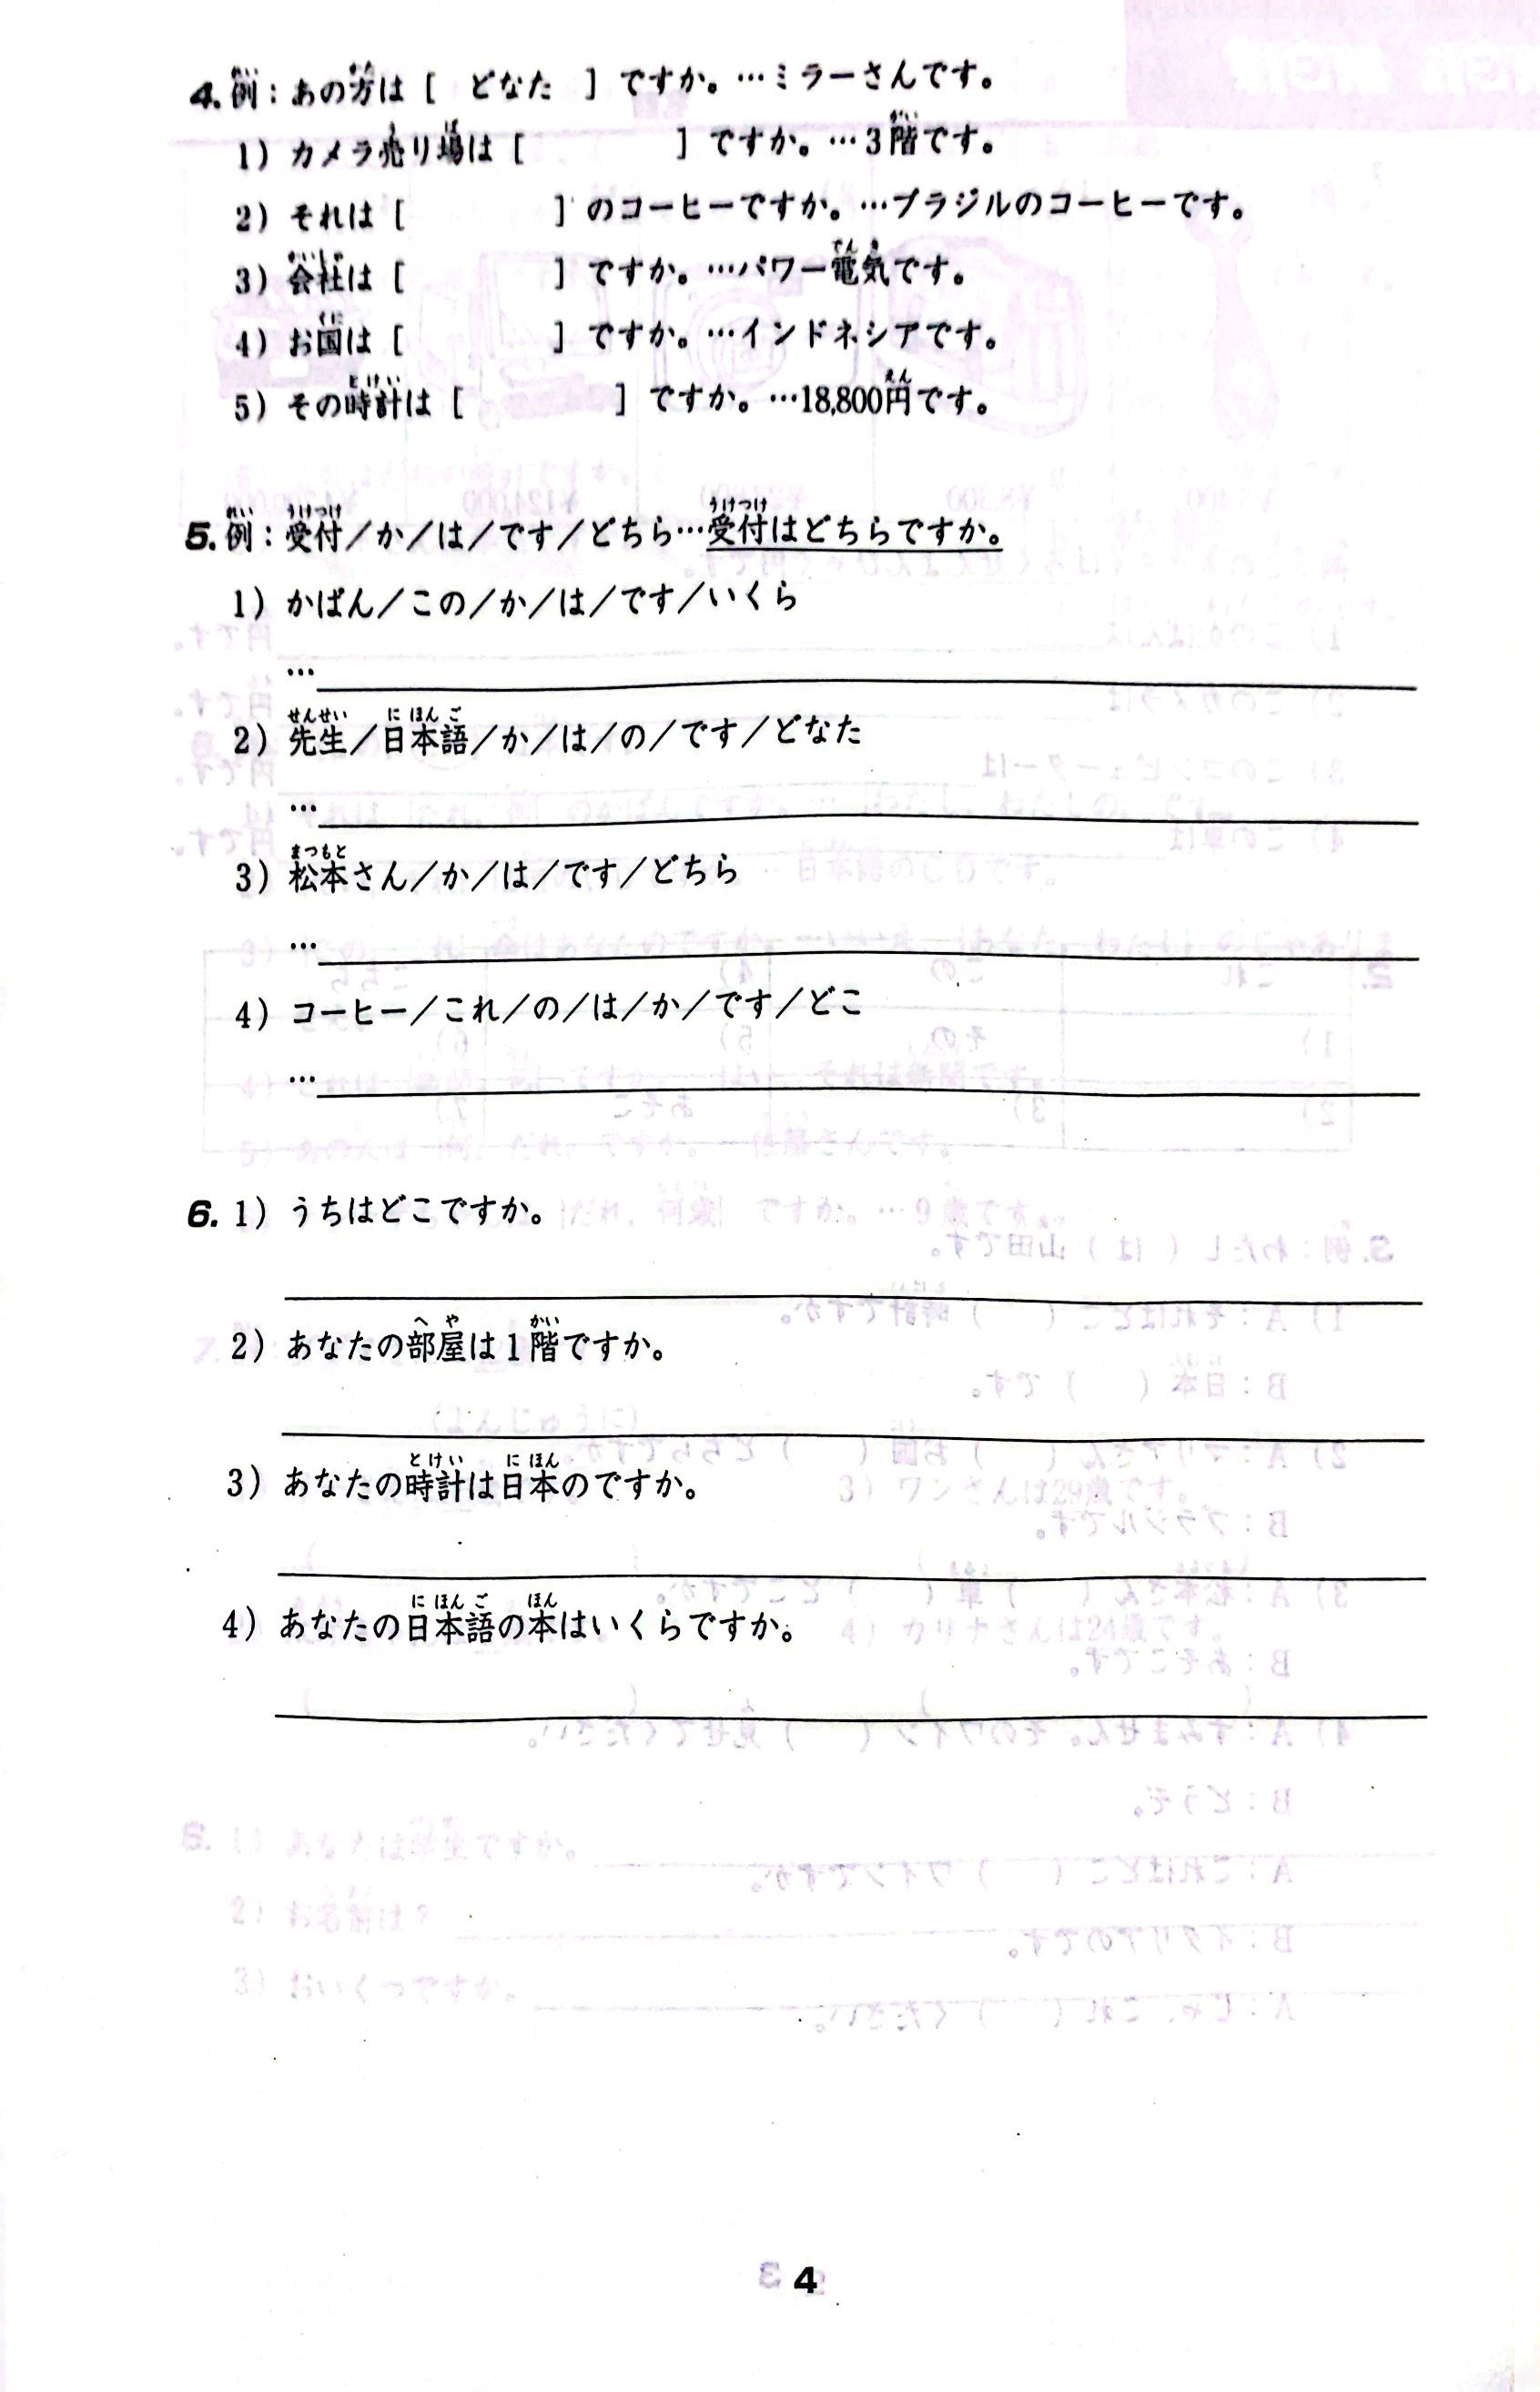 4. 例：あの方は［ どなた ］ですか。…ミラーさんです。
1) カメラ売り場は［ ］ですか。…3階です。
2) それは［ ］のコーヒーですか。…ブラジルのコーヒーです。
3) 会社は［ ］ですか。…パワー電気です。
4) お国は［ ］ですか。…インドネシアです。
5) その時計は［ ］ですか。…18,800円です。
5. 例：受付／か／は／です／どちら…受付はどちらですか。
1) かばん／この／か／は／です／いくら
…
2) 先生／日本語／か／は／の／です／どなた
…
3) 松本さん／か／は／です／どちら
…
4) コーヒー／これ／の／は／か／です／どこ
…
6. 1) うちはどこですか。
2) あなたの部屋は1階ですか。
3) あなたの時計は日本のですか。
4) あなたの日本語の本はいくらですか。
4